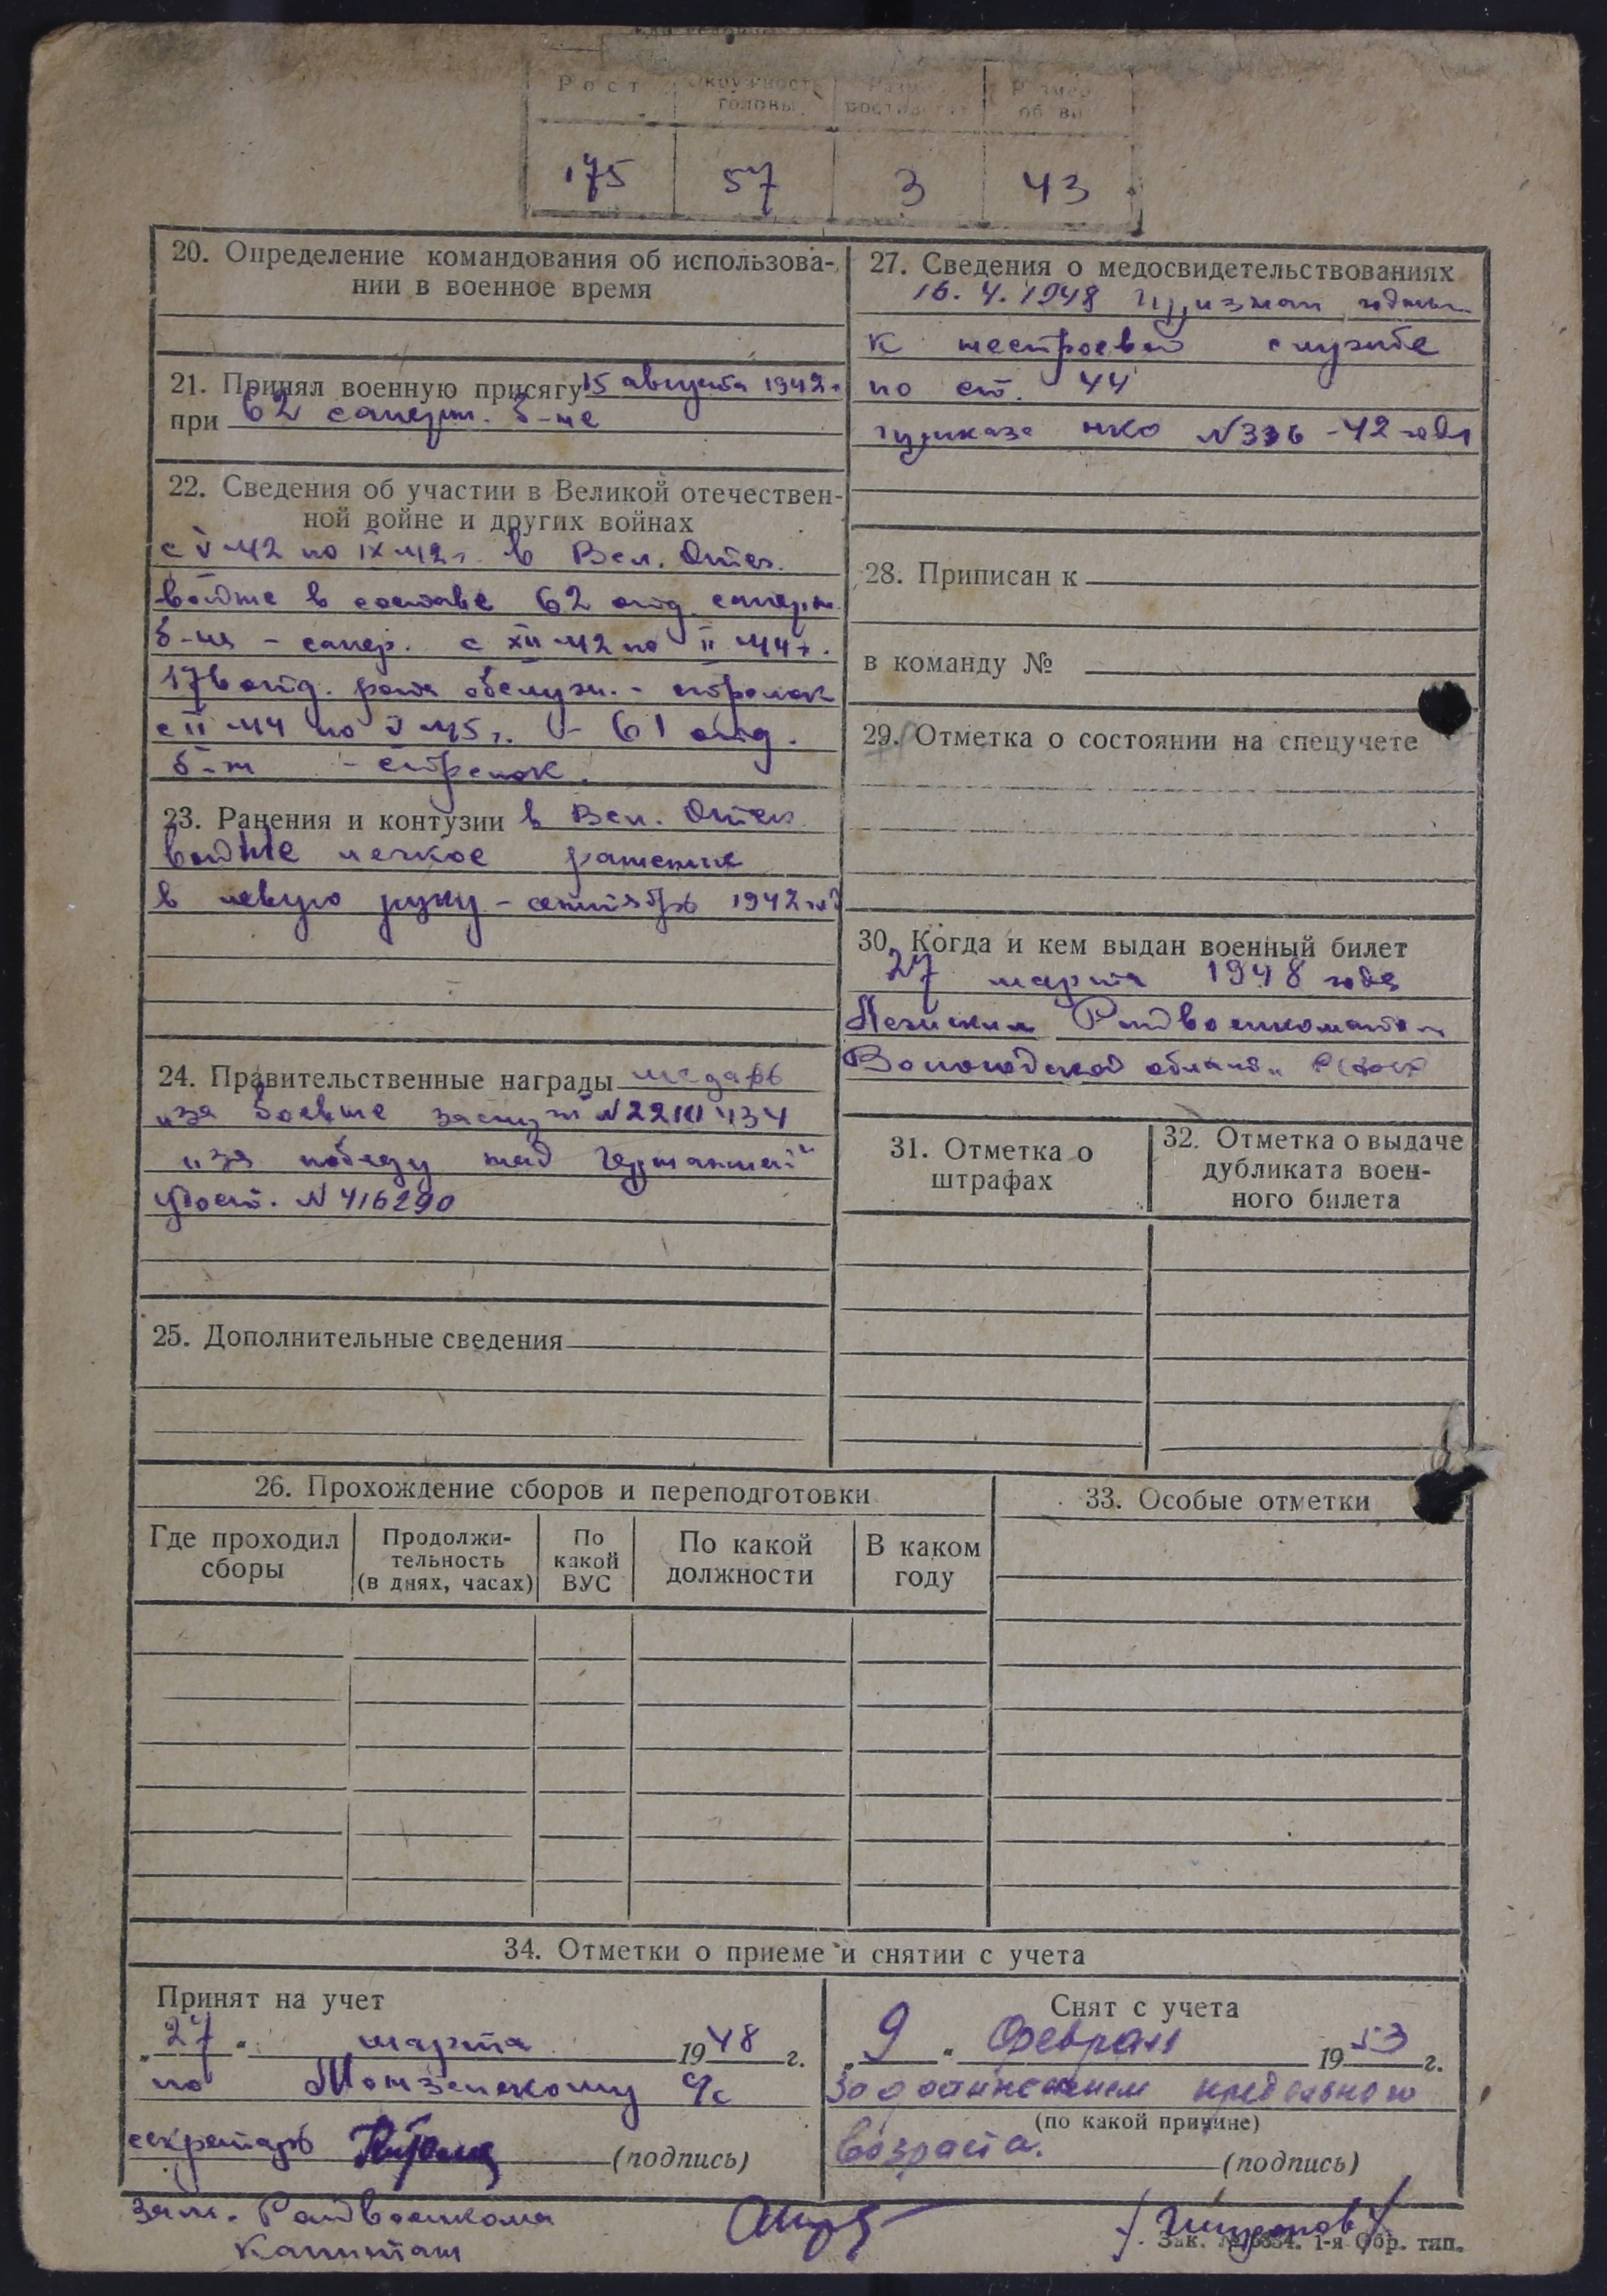 Рост
Окружность головы
175 57 3 43
20. Определение командования об использова-
нии в военное время
21. Принял военную присягу 15 августа 1942 г
при 62 саперн. б-не
22. Сведения об участии в Великой отечествен-
ной войне и других войнах
с V-42 по IX-42 г. в Вел. Отеч.
войне в составе 62 отд. саперн.
б-на - сапер. с XII-42 по II-44 г.
176 отд. рота обслуж. - стрелок
с II-44 по V-45 г. - 61 отд.
б-н - стрелок.
23. Ранения и контузии в Вел. Отеч
войне легкое ранение
в левую руку - сентябрь 1942
24. Правительственные награды медаль
"за боевые заслуги" N 2210434
"за победу над Германией"
удост. N 416290
25. Дополнительные сведения
27. Сведения о медосвидетельствованиях
16. 4. 1948 признан годным
к нестроевой службе
по ст. 44
приказа НКО N 336 - 42 года
28. Приписан к
в команду №
29. Отметка о состоянии на спецучете
30. Когда и кем выдан военный билет
27 марта 1948 года
Райвоенкоматом
Вологодской области РСФСР
31. Отметка о
штрафах
32. Отметка о выдаче
дубликата воен-
ного билета
26. Прохождение сборов и переподготовки
33. Особые отметки
Где проходил
сборы
Продолжи-
тельность
(в днях, часах)
По
какой
ВУС
По какой
должности
В каком
году
34. Отметки о приеме и снятии с учета
Принят на учет
"27" марта 1948 г.
по с/с
секретарь (подпись)
Зам. Райвоенкома
Капитан
Снят с учета
"9" февраля 1953 г.
За достижением предельного
(по какой причине)
возраста. (подпись)
Зак. 1-я Обр. тип.